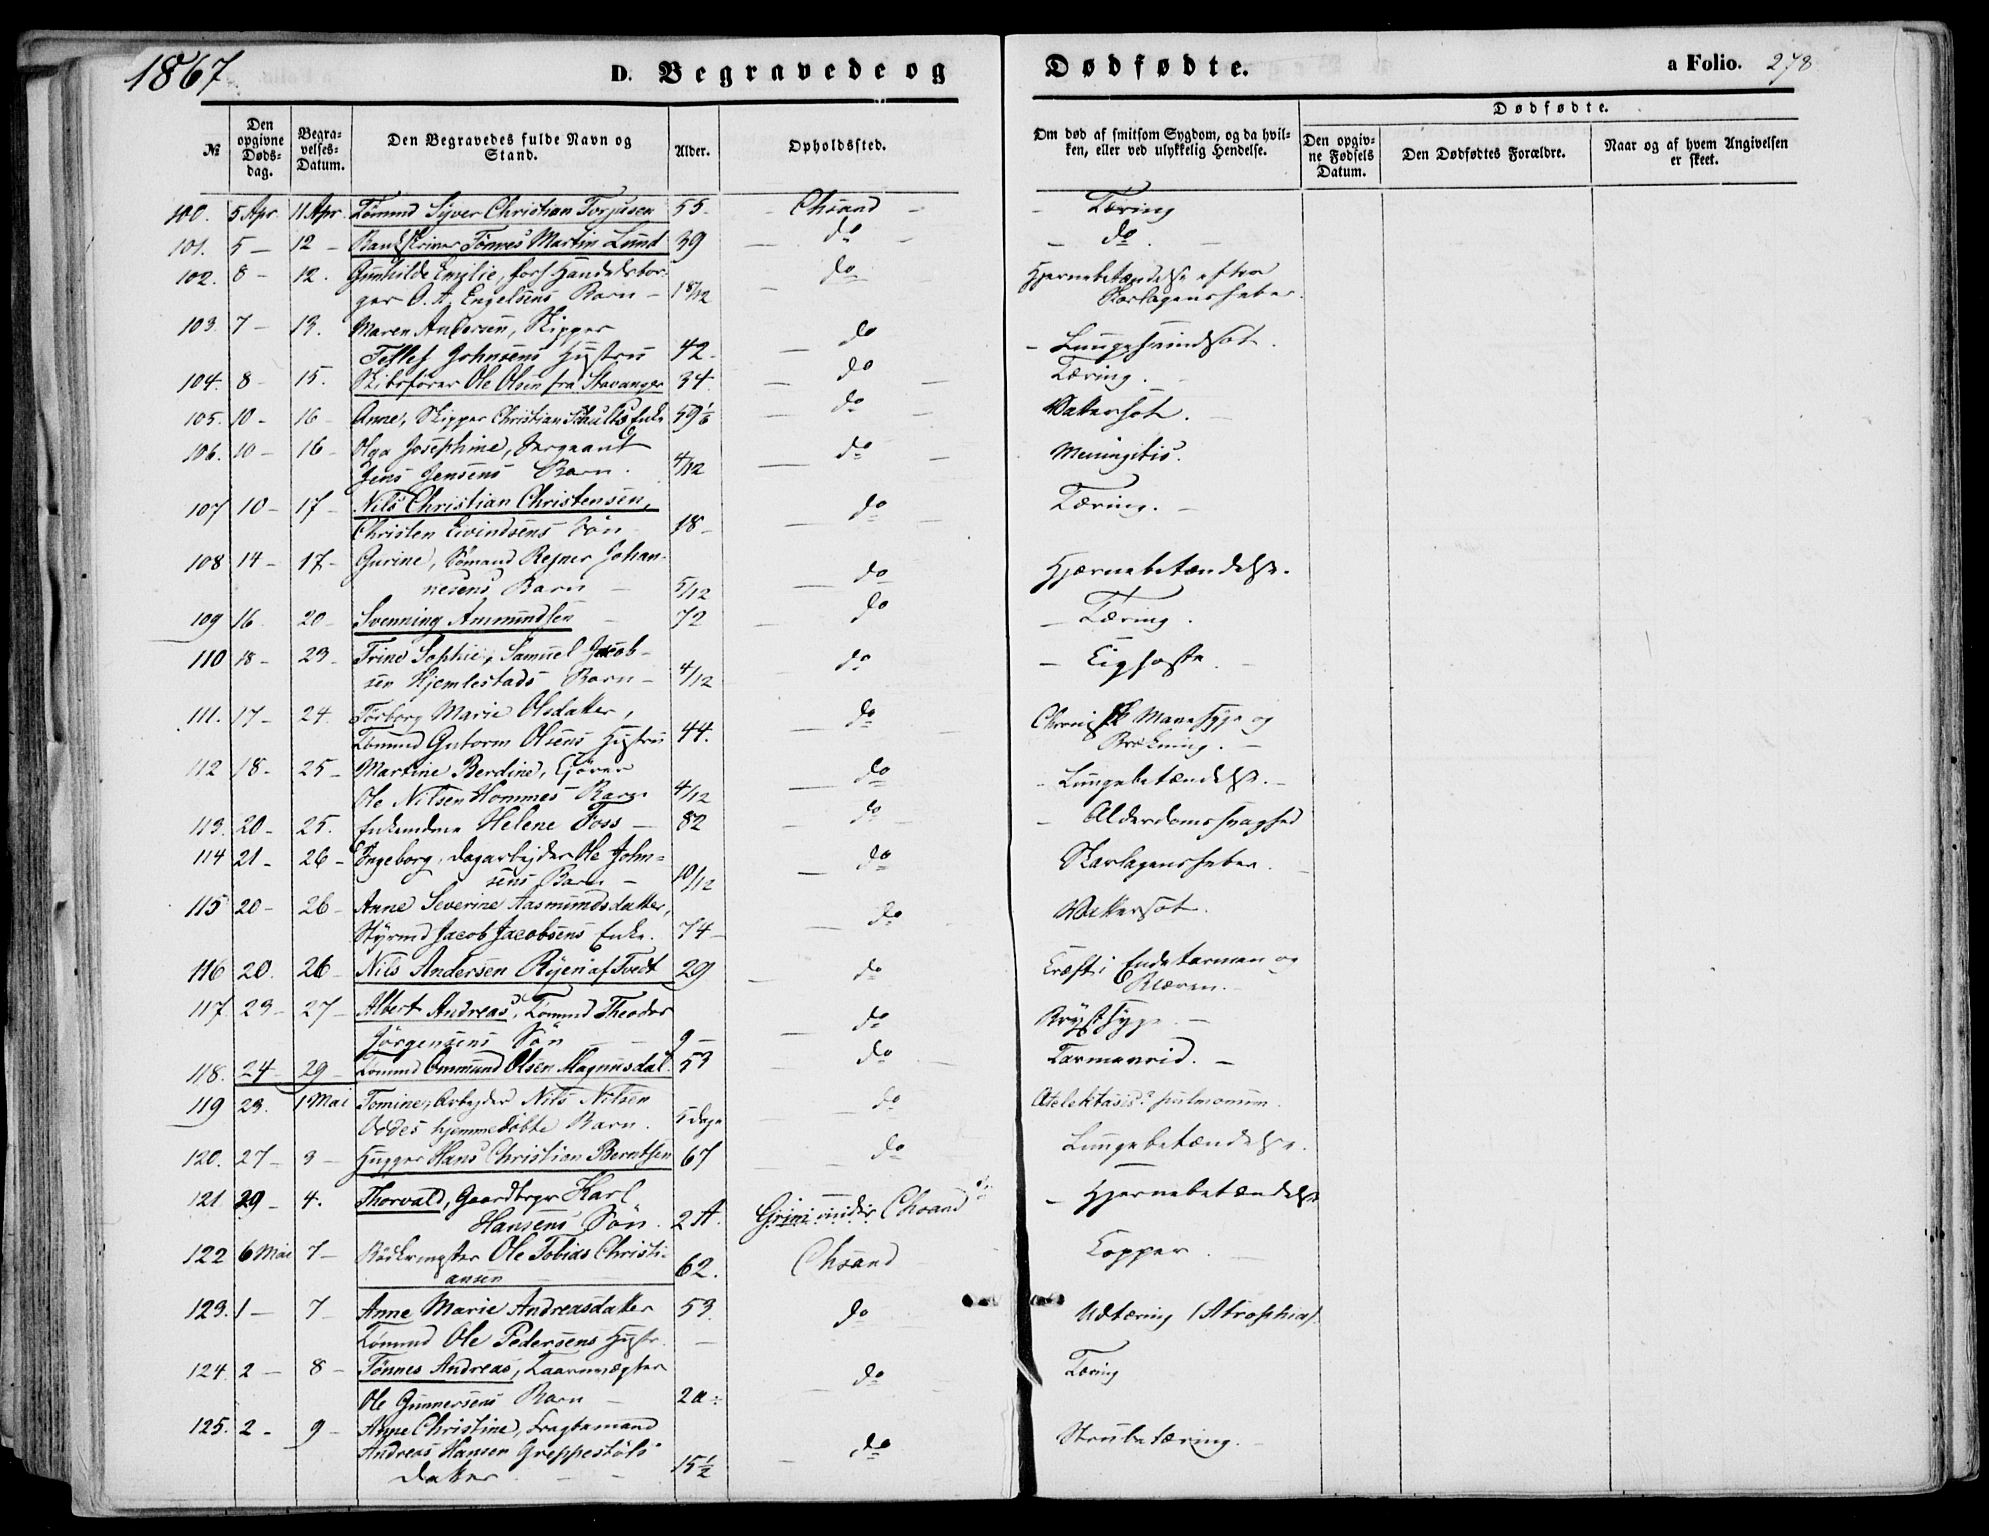 1867
D. Begravede og Dødfødte.
a Folio. 278
№
Den opgivne Døds-dag.
Begra-velses-Datum.
Den Begravedes fulde Navn og Stand.
Alder.
Opholdssted.
Om død af smitsom Sygdom, og da hvil-ken, eller ved ulykkelig Hendelse.
Dødfødte.
Den opgiv-ne Fødsels Datum.
Den Dødfødtes Forældre.
Naar og af hvem Angivelsen er skeet.
100. 5 Apr. 11 Apr. Tømmd Syver Christian Torjusen 55 - Chsand - - Tæring
101. 5 - 12 - Bankskriver Tønnes Martin Lund 39 - do - - do. -
102. 8 - 12. Gunhilde Emilie, forh. Handelsbor- - do Hjernebetændelse efter
ger O. A. Engelsens Barn - 18/12 Skarlagensfeber.
103. 7 - 13. Maren Andersen, Skipper do
Tellef Johnsens Hustru 42. - Lungesvindsot.
104. 8 - 15. Skibsfører Ole Olsen fra Stavanger 34 - do - Tæring. -
105. 10 - 16 - Anne, Skipper Christian Schultz Enke 59 1/2 - do - Vattersot. -
106. 10 - 16 - Olga Josephine, Sergeant do Meningitis.
Jens Jensens Barn. 4/12
107 10 - 17 - Nils Christian Christensen, do Tæring. -
Christen Eivindsens Søn 18 -
108 14 - 17 - Gurine, Sømand Rejner Johan- do Hjærnebetændelse.
nesens Barn - 5/12
109 16. 20 - Svenning Ammundsen - 72 do - Tæring.
110 18 - 23 - Trine Sophie, Samuel Jacob- do - Kighoste. -
sen Hjemlestads Barn - 4/12
111. 17 - 24. Torborg Marie Olsdatter, do Chronisk Mavesyge og
Tømmd Gutorm Olsens Hustru 44. Brækning. -
112 18 - 25 - Martine Berdine, Kjører do - Lungebetændelse. -
Ole Nilsen Hommes Barn 4/12
113. 20 - 25. Enkemdme Helene Foss - 82 - do - - Alderdomssvaghed
114 21 - 26 - Ingeborg, Dagarbejder Ole John- do Skarlagensfeber.
sens Barn - 10/12
115 20 - 26 - Anne Severine Aasmundsdatter, do Vattersot.
Styrmd Jacob Jacobsens Enke. 74 -
116 20. 26 - Nils Andersen Ryen af Tvedt 29 do Kræft i Endetarmen og
Blæren. -
117. 23 - 27 - Albert Andreas, Tømmd Theodor do Brystsyge. -
Jørgensens Søn - - 9 -
118. 24 - 29 - Tømmd Ommund Olsen Magnusdal 53 do Tarmevrid. -
119 23. 1 Mai Tomine, Arbejder Nils Nilsen do Atelektasis pulmonum.
Oddes hjemmedøbte Barn. 5 dage
120. 27 - 3 - Hugger Hans Christian Berntsen 67 do Lungebetændelse.
121 29 - 4. Thorvald, Gaardbrger Karl - Hjernebetændelse
Hansens Søn. 2 A. Grim under Chsand
122 6 Mai 7 - Bødkermester Ole Tobias Christi- Chsand Kopper. -
ansen 62.
123. 1 - 7 Anne Marie Andreasdatter 53. do Udtæring (Atrophia).
Tømmd Ole Pedersens Hustr. -
124. 2 - 8 - Tønnes Andreas, Taarnvægter do Tæring
Ole Gunnersens Barn - 2 a
125. 2 - 9 - Anne Christine, Fragtemand do Strubetæring. -
Andreas Hansen Greppestøls
Datter. - - 15 1/2